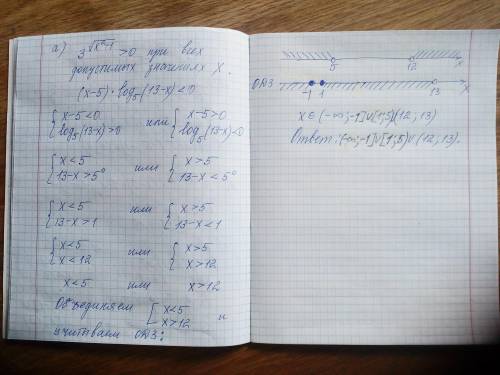 а) 3^√(x²-1) > 0 при всех
допустимых значениях x.
(x-5)·log₅(13-x)<0
{x-5<0 или {x-5>0
{log₅(13-x)>0 {log₅(13-x)<0
{x<5 или {x>5
{13-x>5⁰ {13-x<5⁰
{x<5 или {x>5
{13-x>1 {13-x<1
{x<5 или {x>5
{x<12 {x>12
x<5 или x>12
Объединяем [x<5 и
[x>12
учитываем ОДЗ:
5 12 x
ОДЗ -1 1 13 x
x∈(-∞;-1]∪[1;5)(12;13)
Ответ: (-∞;-1]∪[1;5)∪(12;13).